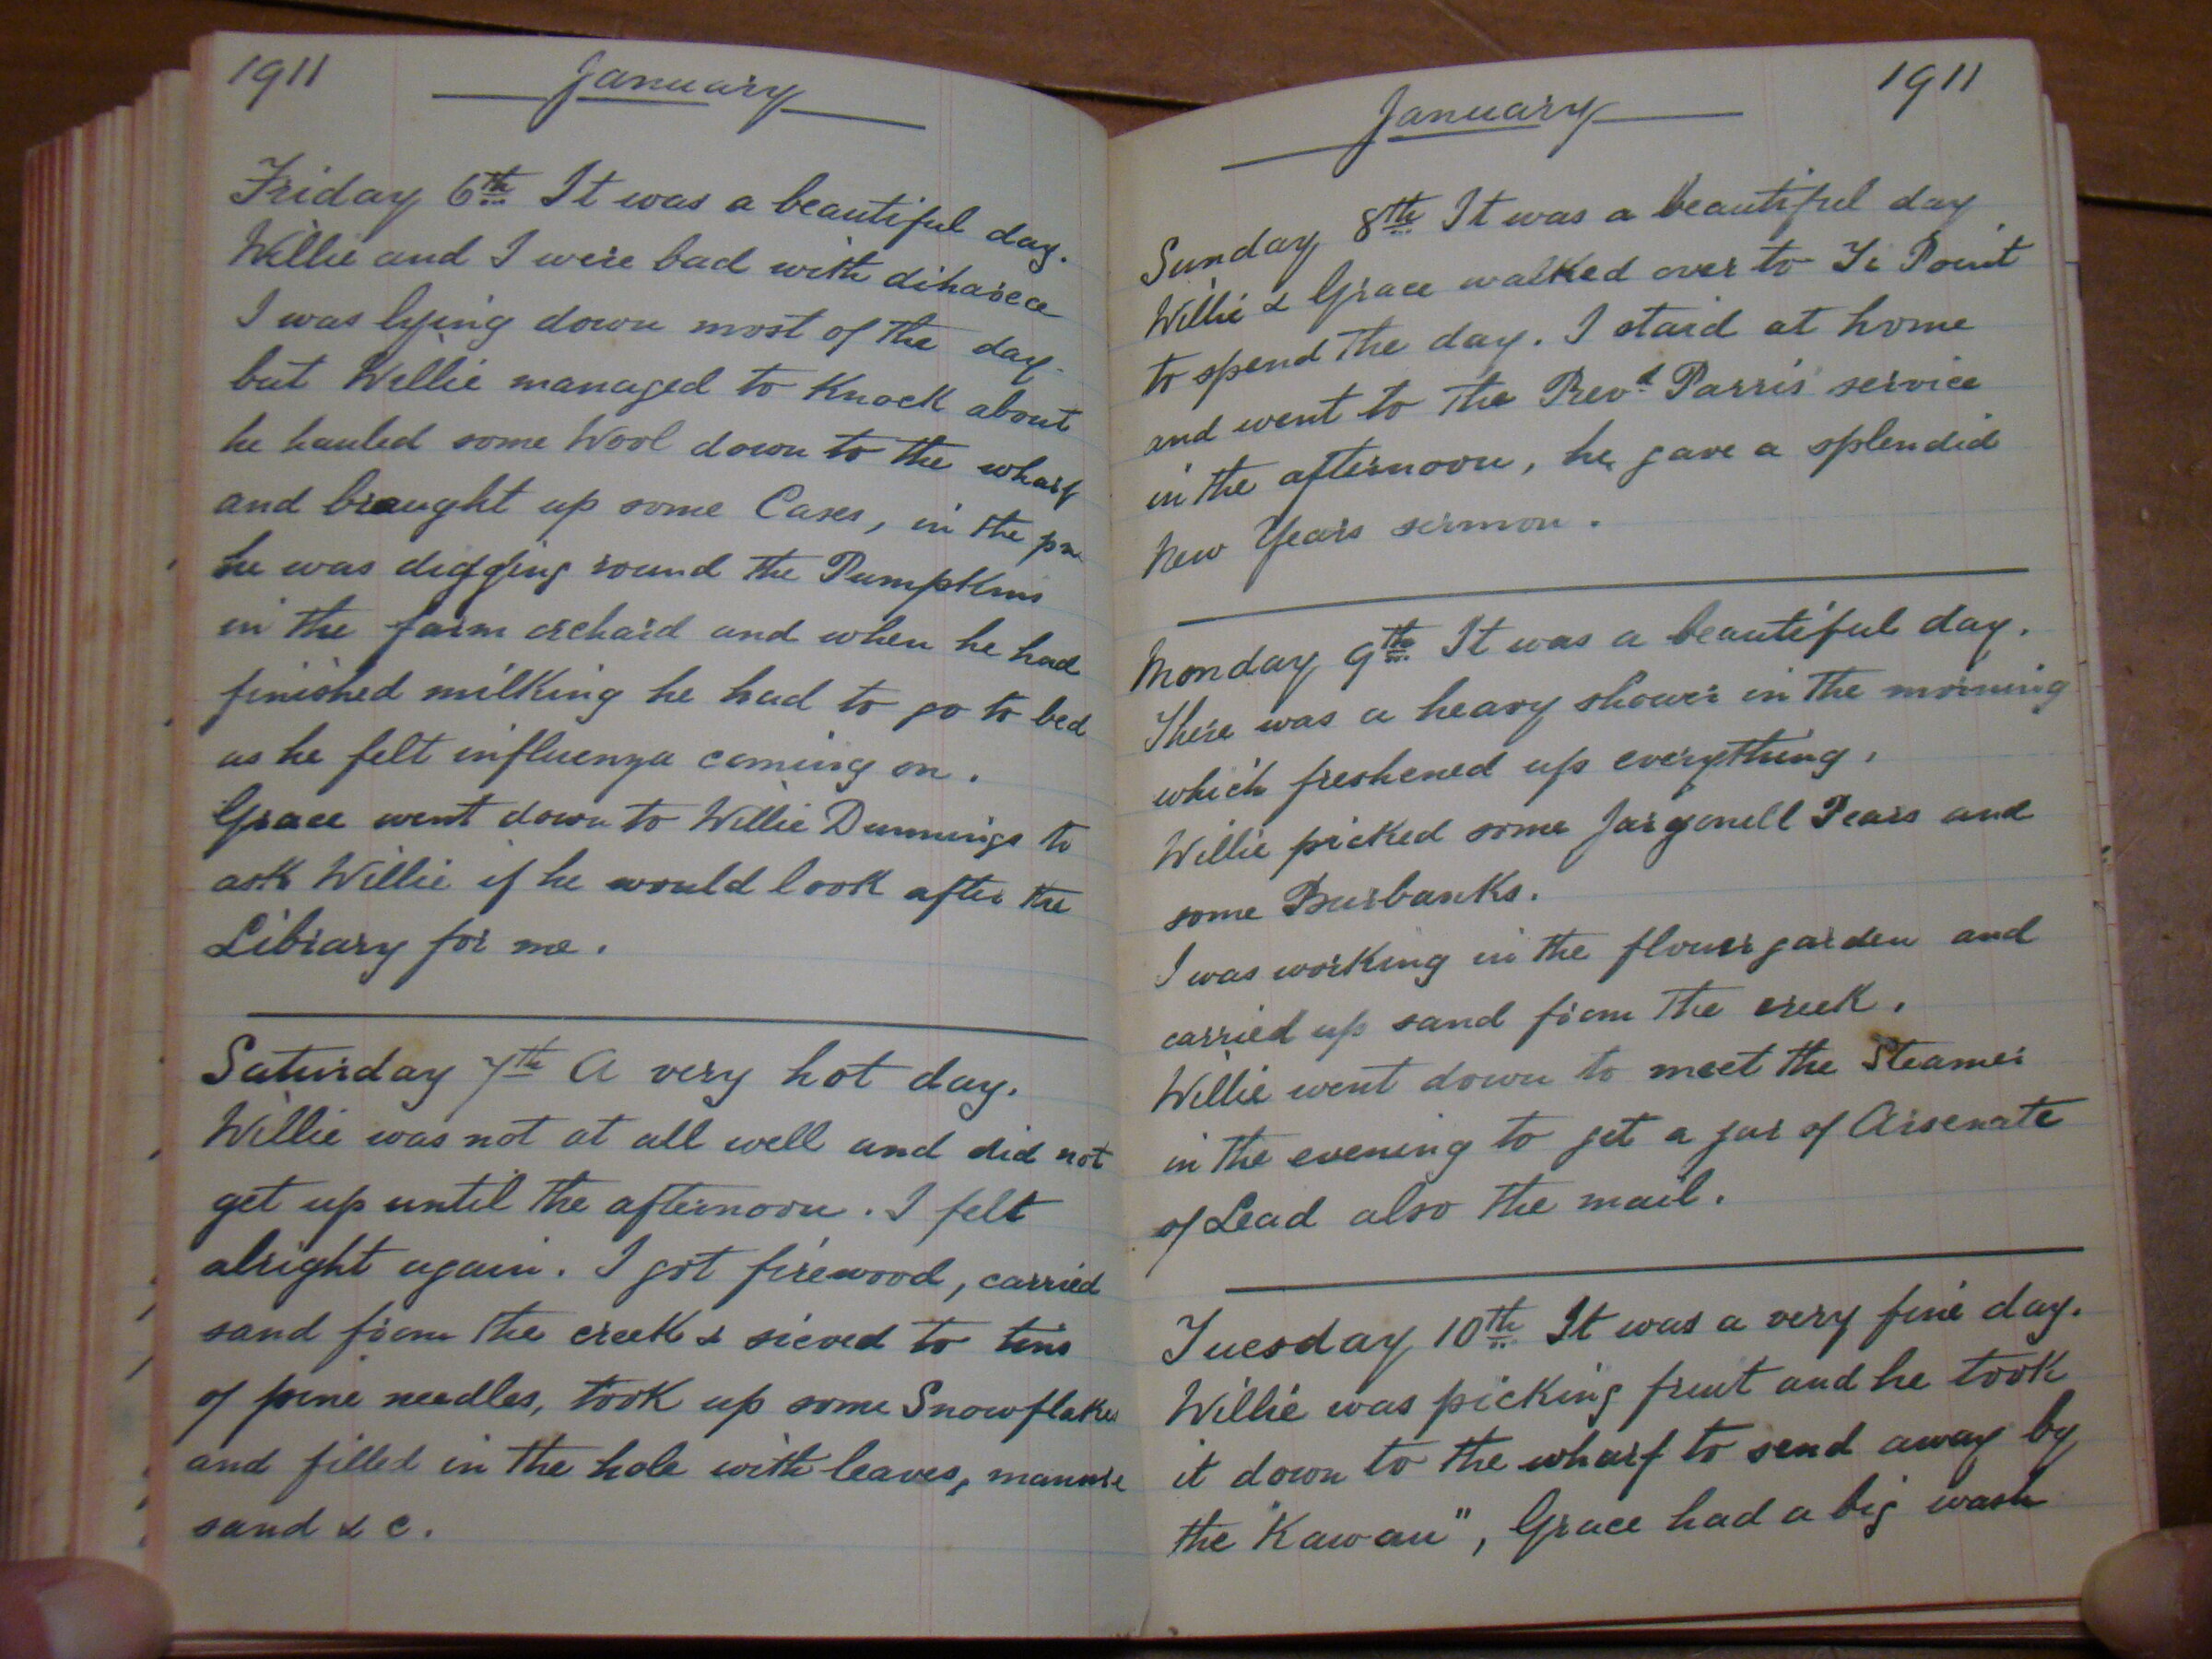 1911 January
Friday 6th It was a beautiful day.
Willie and I were bad with dihareea
I was lying down most of the day
but Willie managed to Knock about
he hauled some Wool down to the wharf
and braught up some Cases, in the pm
he was digging round the Pumpkins
in the farm orchard and when he had
finished milking he had to go to bed
as he felt influenza coming on.
Grace went down to Willie Dunnings to
ask Willie if he would look after the
Library for me.
Saturday 7th A very hot day.
Willie was not at all well and did not
get up until the afternoon. I felt
alright again. I got firewood, carried
sand from the creek & sieved to tins
of pine needles, took up some Snowflakes
and filled in the hole with leaves, manure
sand & c.
January 1911
Sunday 8th It was a beautiful day
Willie & Grace walked over to Ti Point
to spend the day. I staid at home
and went to the Revd Parris service
in the afternoon, he gave a splendid
New Years sermon.
Monday 9th It was a beautiful day.
There was a heavy shower in the morning
which freshened up everything.
Willie picked some Jargonell Pears and
some Burbanks.
I was working in the flower garden and
carried up sand from the creek.
Willie went down to meet the Steamer
in the evening to get a jar of Arsenate
of Lead also the mail.
Tuesday 10th It was a very fine day.
Willie was picking fruit and he took
it down to the wharf to send away by
the "Kawau", Grace had a big wash